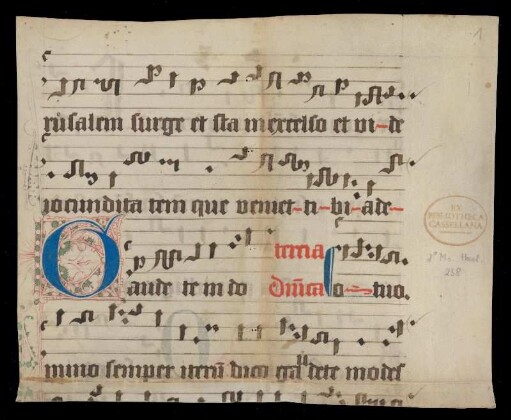 rusalem surge et sta in excelso et vi-de
iocundita tem que veniet ti-bi ade-
tercia
Gaude te in do Dñica o-tuo.
mino semper iterū dico gaudete modes
1
EX
BIBLIOTHECA
CASSELLANA
2° Ms. Hass.
258